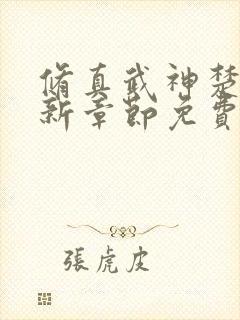 脩真武神楚
新章節免費
張虎皮